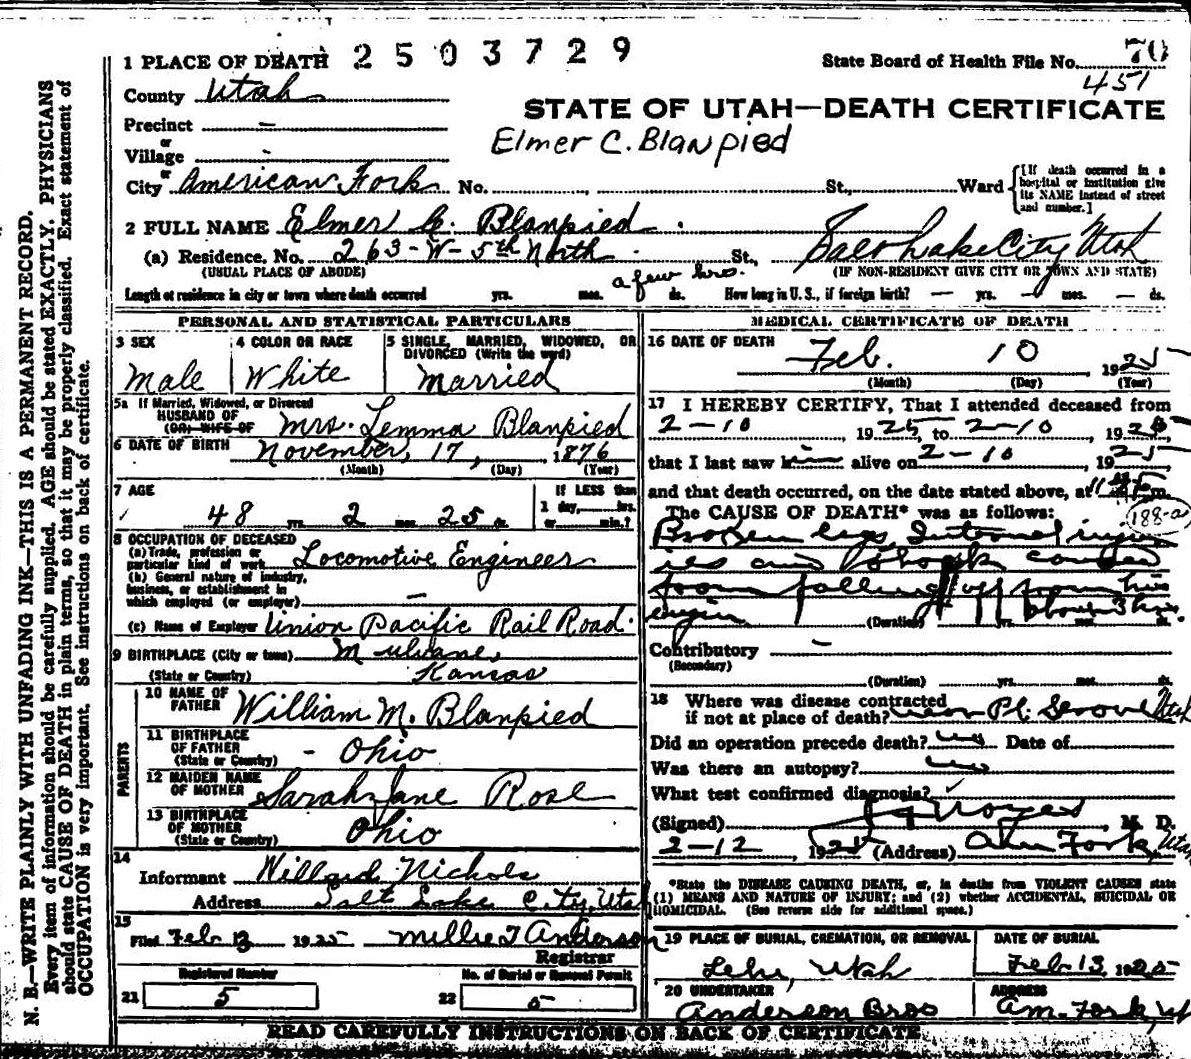 1 PLACE OF DEATH 2503729
State Board of Health File No. 70
451
County Utah
STATE OF UTAH—DEATH CERTIFICATE
Precinct –
Elmer C. Blanpied
or
Village –
or
City American Fork No. St., Ward
[If death occurred in a hospital or institution give its NAME instead of street and number.]
2 FULL NAME Elmer C. Blanpied
(a) Residence, No. 263-W-5th North St., Salt Lake City Utah
(USUAL PLACE OF ABODE) (IF NON-RESIDENT GIVE CITY OR TOWN AND STATE)
Length of residence in city or town where death occurred yrs. mos. a few hrs. ds. How long in U. S., if foreign birth? — yrs. — mos. — ds.
PERSONAL AND STATISTICAL PARTICULARS
3 SEX 4 COLOR OR RACE 5 SINGLE, MARRIED, WIDOWED, OR DIVORCED (Write the word)
Male White Married
5a If Married, Widowed, or Divorced
HUSBAND OF
(OR) WIFE OF Mrs. Lemma Blanpied
6 DATE OF BIRTH November, 17, 1876
(Month) (Day) (Year)
7 AGE If LESS than
48 yrs. 2 mos. 25 ds. 1 day, hrs.
or min.?
8 OCCUPATION OF DECEASED
(a) Trade, profession or
particular kind of work Locomotive Engineer
(b) General nature of industry,
business, or establishment in
which employed (or employer) –
(c) Name of Employer Union Pacific Rail Road.
9 BIRTHPLACE (City or town) Mulvane,
(State or Country) Kansas
PARENTS
10 NAME OF
FATHER William M. Blanpied
11 BIRTHPLACE
OF FATHER
(State or Country) - Ohio
12 MAIDEN NAME
OF MOTHER Sarah Jane Rose
13 BIRTHPLACE
OF MOTHER
(State or Country) Ohio
14
Informant Willard Nichols
Address Salt Lake City, Utah
15
Filed Feb 13 1925 Millie T Anderson
Registrar
Registered Number No. of Burial or Removal Permit
21 5 22 5
MEDICAL CERTIFICATE OF DEATH
16 DATE OF DEATH Feb. 10 1925
(Month) (Day) (Year)
17 I HEREBY CERTIFY, That I attended deceased from
2-10, 1925, to 2-10, 1925
that I last saw him alive on 2-10, 1925
and that death occurred, on the date stated above, at m.
The CAUSE OF DEATH* was as follows:
188-a
Broken legs Internal injur
ies and Shock caused
from falling off from his
engin
(Duration) yrs. mos. about 3 hrs. ds.
Contributory –
(Secondary)
(Duration) yrs. mos. ds.
18 Where was disease contracted
if not at place of death? near Pl. Grove Utah
Did an operation precede death? no Date of
Was there an autopsy? no
What test confirmed diagnosis?
(Signed) Noyes M. D.
2-12, 1925 (Address) Am Fork, Utah
*State the DISEASE CAUSING DEATH, or, in deaths from VIOLENT CAUSES state
(1) MEANS AND NATURE OF INJURY; and (2) whether ACCIDENTAL, SUICIDAL OR
HOMICIDAL. (See reverse side for additional space.)
19 PLACE OF BURIAL, CREMATION, OR REMOVAL DATE OF BURIAL
Lehi, Utah Feb. 13, 1925
20 UNDERTAKER ADDRESS
Anderson Bros Am. Fork, Ut
READ CAREFULLY INSTRUCTIONS ON BACK OF CERTIFICATE
N. B.—WRITE PLAINLY WITH UNFADING INK—THIS IS A PERMANENT RECORD.
Every item of information should be carefully supplied. AGE should be stated EXACTLY. PHYSICIANS
should state CAUSE OF DEATH in plain terms, so that it may be properly classified. Exact statement of
OCCUPATION is very important. See instructions on back of certificate.